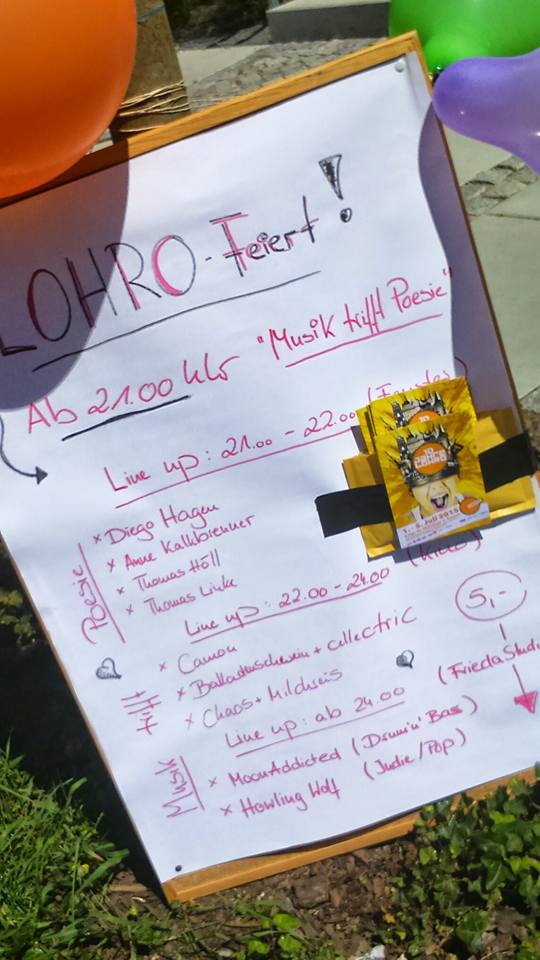 LOHRO-Feiert!
Ab 21.00 Uhr "Musik trifft Poesie"
Line up: 21.00 - 22.00
Poesie
x Diego Hagen
x Anne Kalkbrenner
x Thomas Höll
x Thomas Linke
Line up: 22.00 - 24.00
trifft
x Camon
x Ballastenschwein + collectric
x Chaos + Milchreis
5,-
Line up: ab 24.00
Musik
x MoonAddicted (Drum'n'Bass)
x Howling Wolf (Indie/Pop)